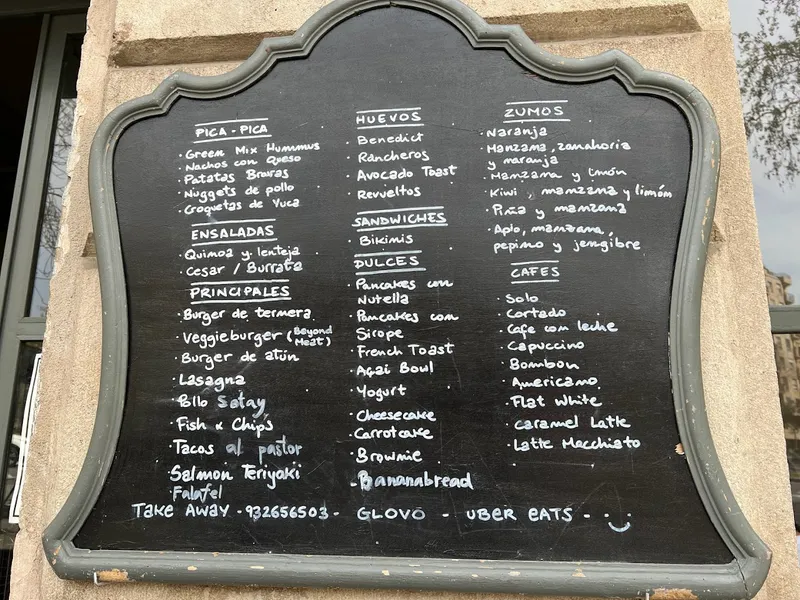 PICA - PICA
· Green Mix Hummus
· Nachos con Queso
· Patatas Bravas
· Nuggets de pollo
· Croquetas de Yuca
ENSALADAS
· Quinoa y lenteja
· Cesar / Burrata
PRINCIPALES
· Burger de ternera
· Veggieburger (Beyond
Meat)
· Burger de atún
· Lasagna
· Pollo Satay
· Fish & Chips
· Tacos al pastor
· Salmon Teriyaki
· Falafel
HUEVOS
· Benedict
· Rancheros
· Avocado Toast
· Revueltos
SANDWICHES
· Bikinis
DULCES
· Pancakes con
Nutella
· Pancakes con
Sirope
· French Toast
· Açai Bowl
· Yogurt
· Cheesecake
· Carrotcake
· Brownie
· Bananabread
ZUMOS
· Naranja
· Manzana, zanahoria
y naranja
· Manzana y limón
· Kiwi, manzana y limón
· Piña y manzana
· Apio, manzana,
pepino y jengibre
CAFES
· Solo
· Cortado
· Cafe con leche
· Capuccino
· Bombon
· Americano
· Flat White
· Caramel Latte
· Latte Macchiato
Take Away - 932656503 - GLOVO - UBER EATS -